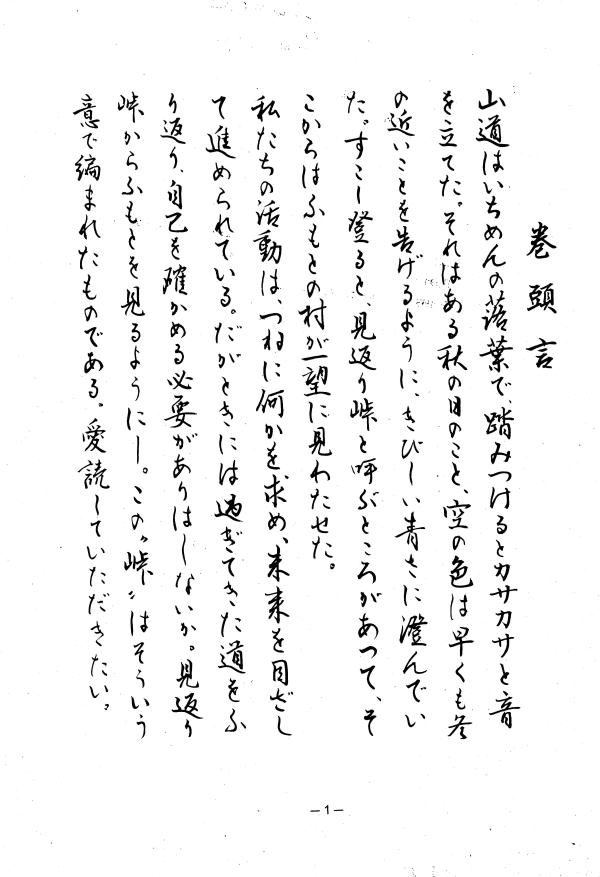 巻頭言
山道はいちめんの落葉で、踏みつけるとカサカサと音
を立てた。それはある秋の日のこと、空の色は早くも冬
の近いことを告げるように、きびしい青さに澄んでい
た。すこし登ると、見返り峠と呼ぶところがあつて、そ
こからはふもとの村が一望に見わたせた。
私たちの活動は、つねに何かを求め、未来を目ざし
て進められている。だがときには過ぎてきた道をふ
り返り、自己を確かめる必要がありはしないか。見返り
峠からふもとを見るようにし。この〝峠〟はそういう
意で編まれたものである。愛読していただきたい。
—1—